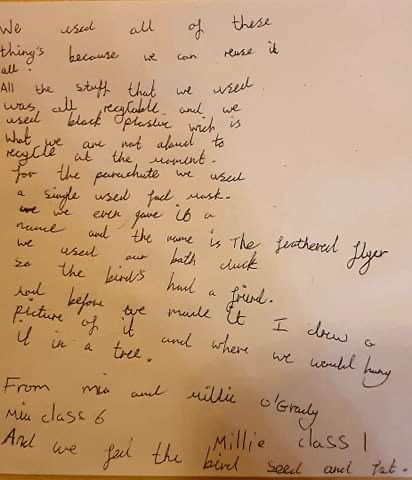 We used all of these
thing's because we can reuse it
all.
All the stuff that we used
was all recyclable and we
used black plastive wich is
what we are not aloud to
recycle at the moment.
for the parachute we used
a single used face mask.
we we even gave it a
name and the name is The feathered flyer
we used our bath duck
so the bird's had a friend.
And before we made it I drew a
picture of it and where we would hang
it in a tree.
From mia and millie O'Grady
Mia class 6
Millie class 1
And we fed the bird seed and fat.